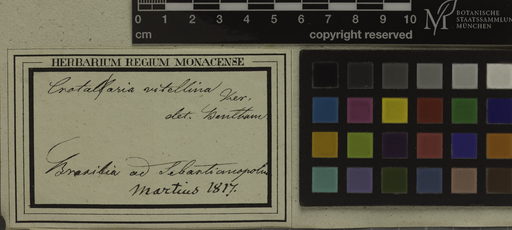 0 1 2 3 4 5 6 7 8 9 10
cm copyright reserved
BOTANISCHE
STAATSSAMMLUNG
MÜNCHEN
HERBARIUM REGIUM MONACENSE
Crotallaria vitellina Ker.
det. Bentham.
Brasilia ad Sebastianopolin
Martius 1817.